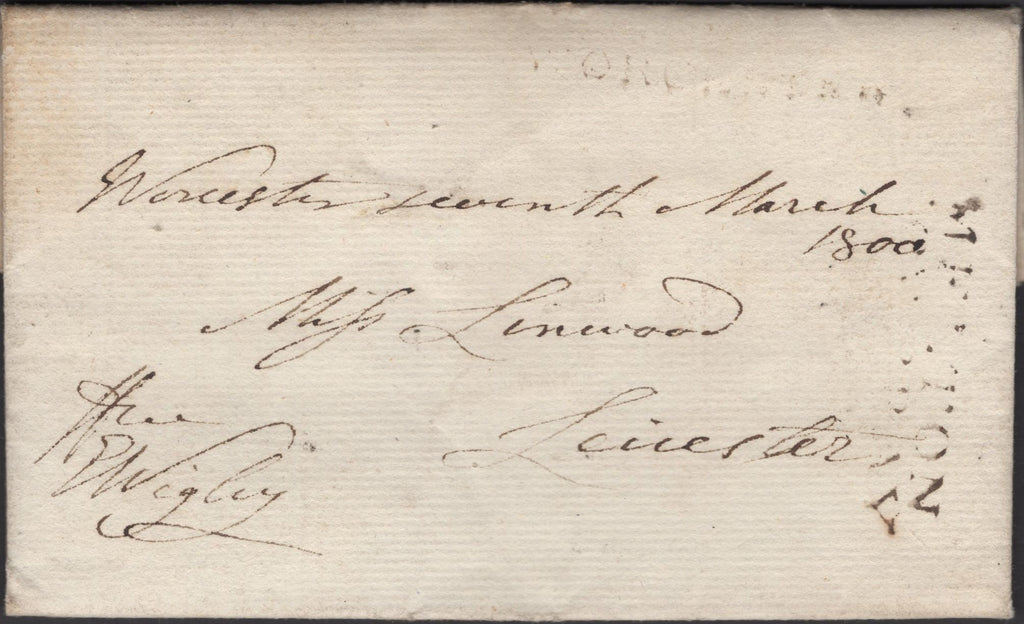 Worcester seventh March
1800
Miss Linwood
Leicester
ffree
EWigley